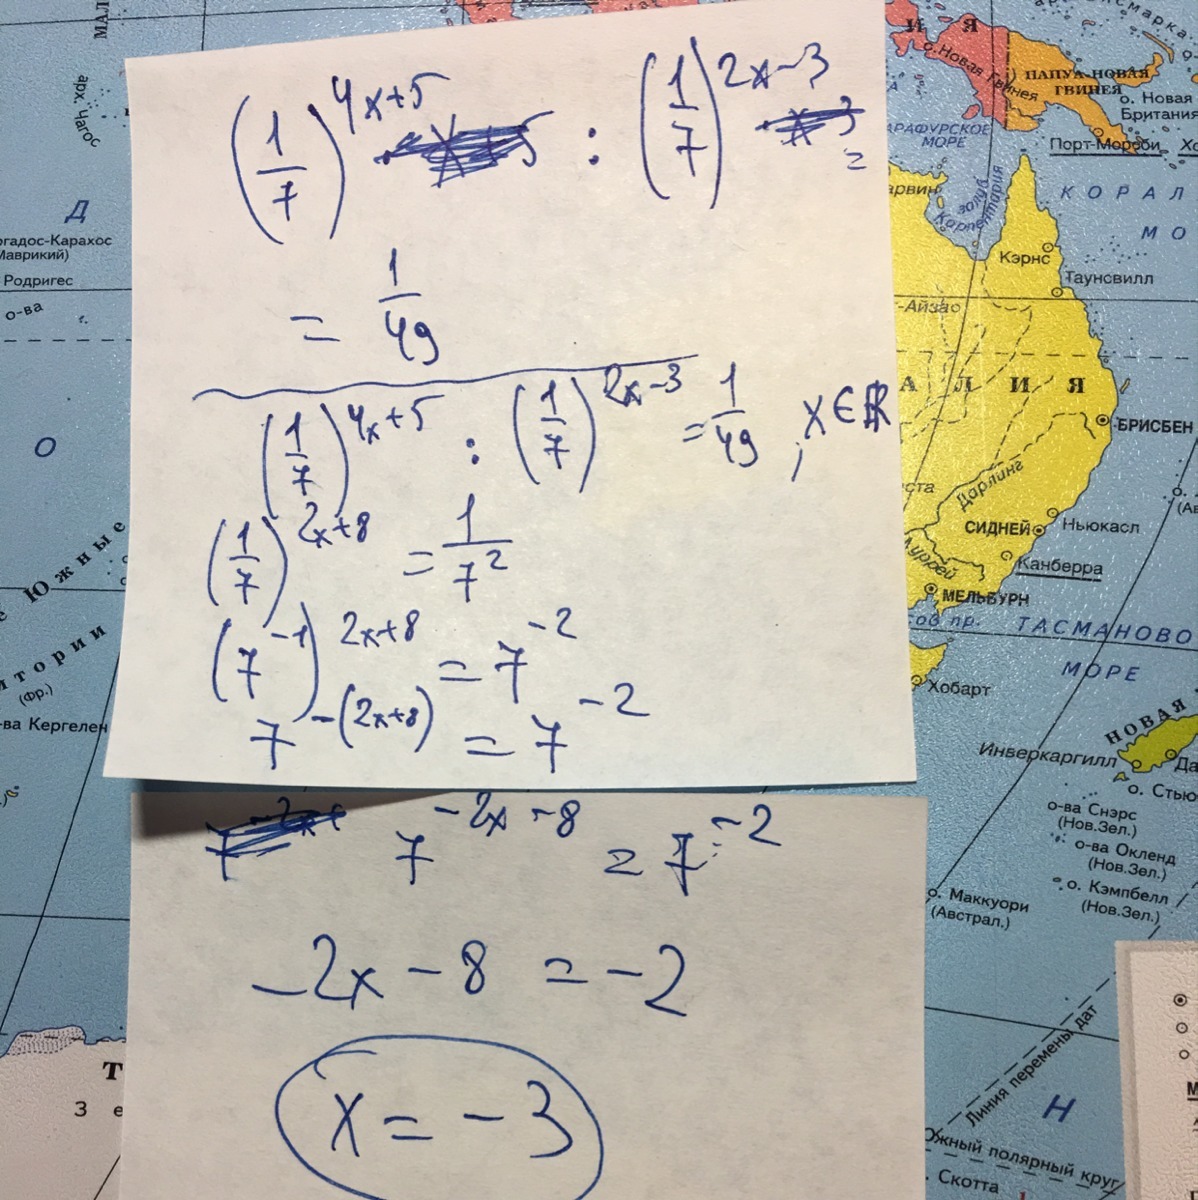 (1/7)^{4x+5} : (1/7)^{2x-3} =
= 1/49
(1/7)^{4x+5} : (1/7)^{2x-3} = 1/49, x∈ℝ
(1/7)^{2x+8} = 1/7^2
(7^{-1})^{2x+8} = 7^{-2}
7^{-(2x+8)} = 7^{-2}
7^{-2x-8} = 7^{-2}
-2x-8 = -2
x = -3
МАЛ
арх. Чагос
Д
ргадос-Карахос
Маврикий)
Родригес
о-ва
О
е Южные
итории
(Фр.)
-ва Кергелен
Т
З е
И Я
о. Новая Гвинея
ПАПУА-НОВАЯ
ГВИНЕЯ
о. Новая
Британия
АРАФУРСКОЕ
МОРЕ
Порт-Морсби
Хо
арвин
залив
Карпентария
КОРАЛ
МО
Кэрнс
Таунсвилл
-Айза
АЛИЯ
БРИСБЕН
ста
Дарлинг
СИДНЕЙ
Ньюкасл
Муррей
Канберра
МЕЛЬБУРН
сов пр.
ТАСМАНОВО
МОРЕ
Хобарт
НОВАЯ
Инверкаргилл
Да
о. Стью
о-ва Снэрс
(Нов.Зел.)
о-ва Окленд
(Нов.Зел.)
о. Кэмпбелл
(Нов.Зел.)
о. Маккуори
(Австрал.)
Линия перемены дат
Н
Южный полярный круг
Скотта